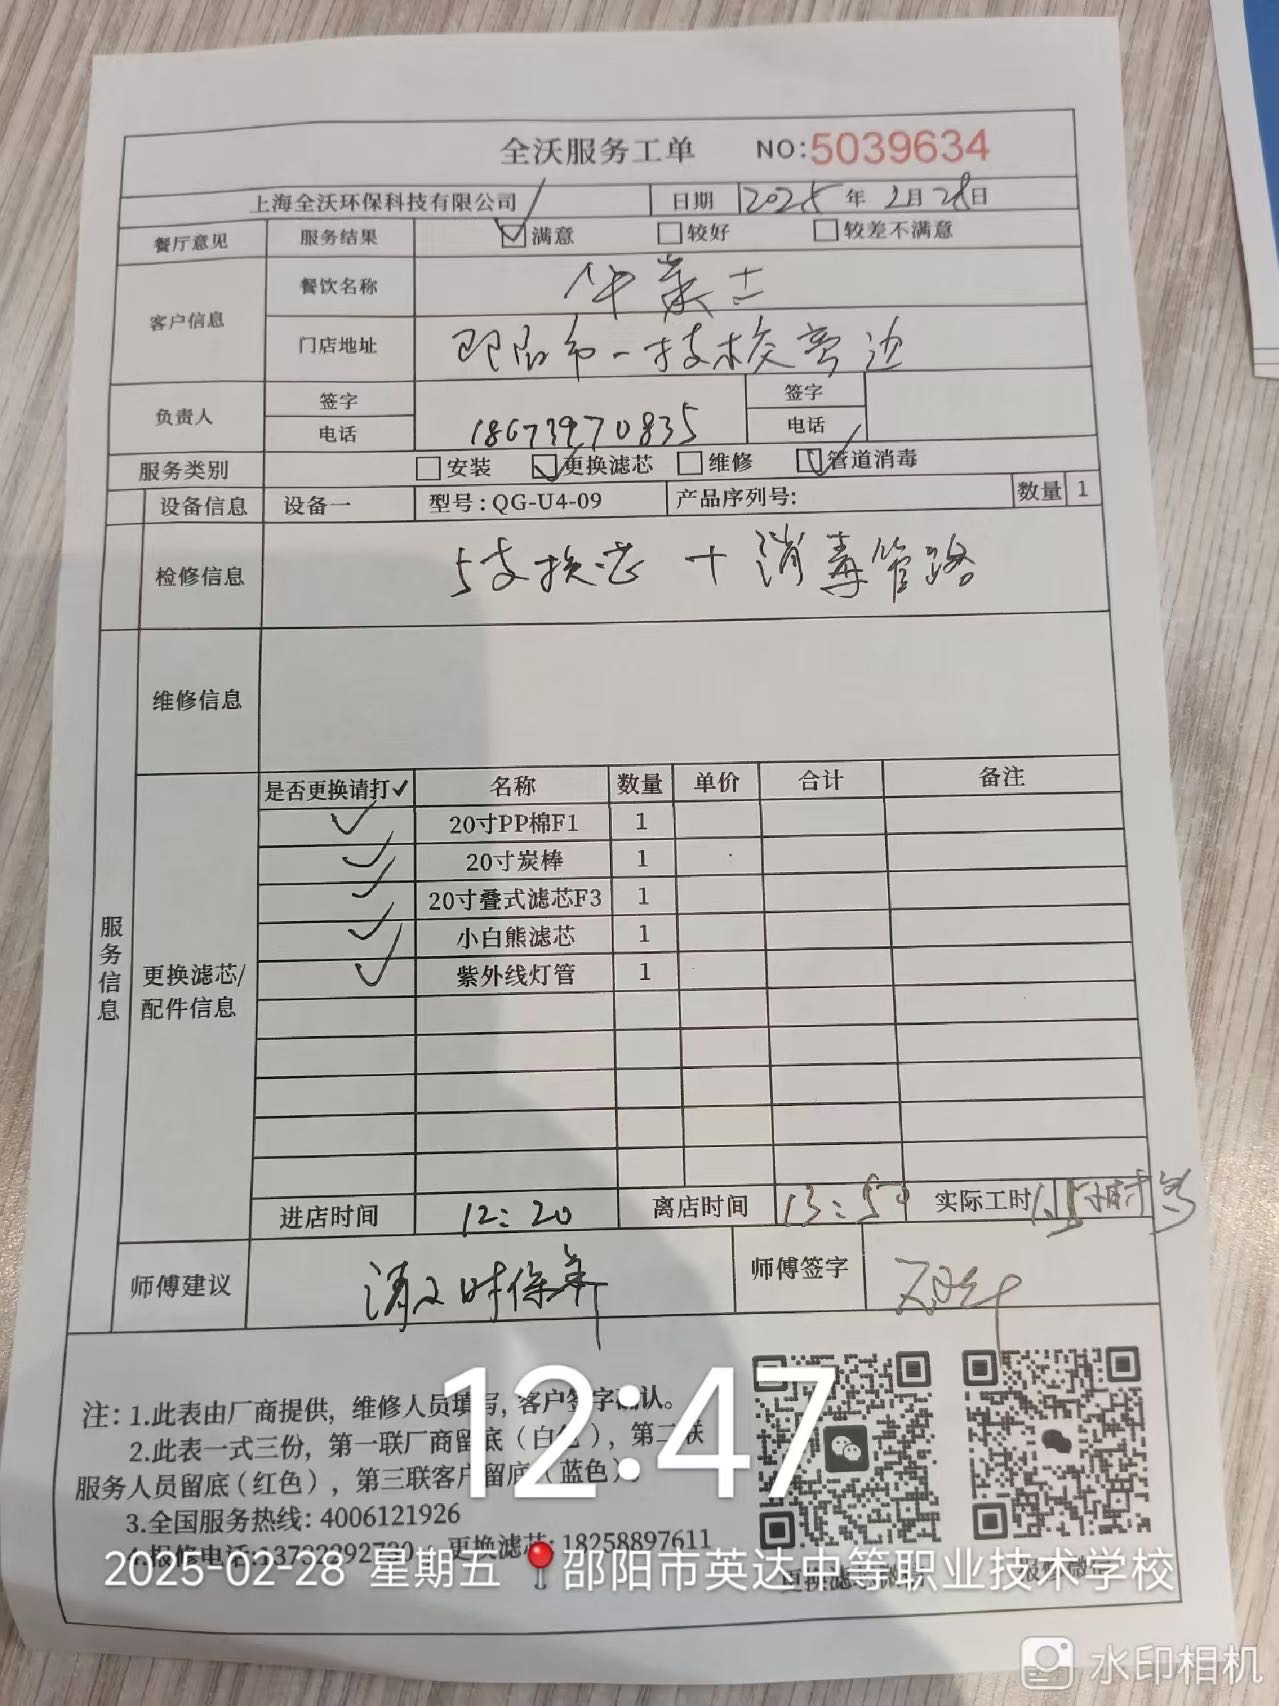 全沃服务工单 NO:5039634
上海全沃环保科技有限公司 日期 2025年2月28日
餐厅意见 服务结果 满意 较好 较差不满意
客户信息 餐饮名称 华莱士
门店地址 邵阳市一技校旁边
负责人 签字 签字
电话 18673970835 电话
服务类别 安装 更换滤芯 维修 管道消毒
设备信息 设备一 型号:QG-U4-09 产品序列号: 数量 1
检修信息 5支换芯 + 消毒管路
维修信息
服务信息
更换滤芯/
配件信息
是否更换请打✓ 名称 数量 单价 合计 备注
✓ 20寸PP棉F1 1
✓ 20寸炭棒 1
✓ 20寸叠式滤芯F3 1
✓ 小白熊滤芯 1
✓ 紫外线灯管 1
进店时间 12:20 离店时间 13:50 实际工时 1.5小时
师傅建议 请及时保养 师傅签字
注:1.此表由厂商提供,维修人员填写,客户签字确认。
2.此表一式三份,第一联厂商留底(白色),第二联
服务人员留底(红色),第三联客户留底(蓝色)。
3.全国服务热线:4006121926
4.报修电话: 更换滤芯:18258897611
12:47
2025-02-28 星期五 邵阳市英达中等职业技术学校
水印相机